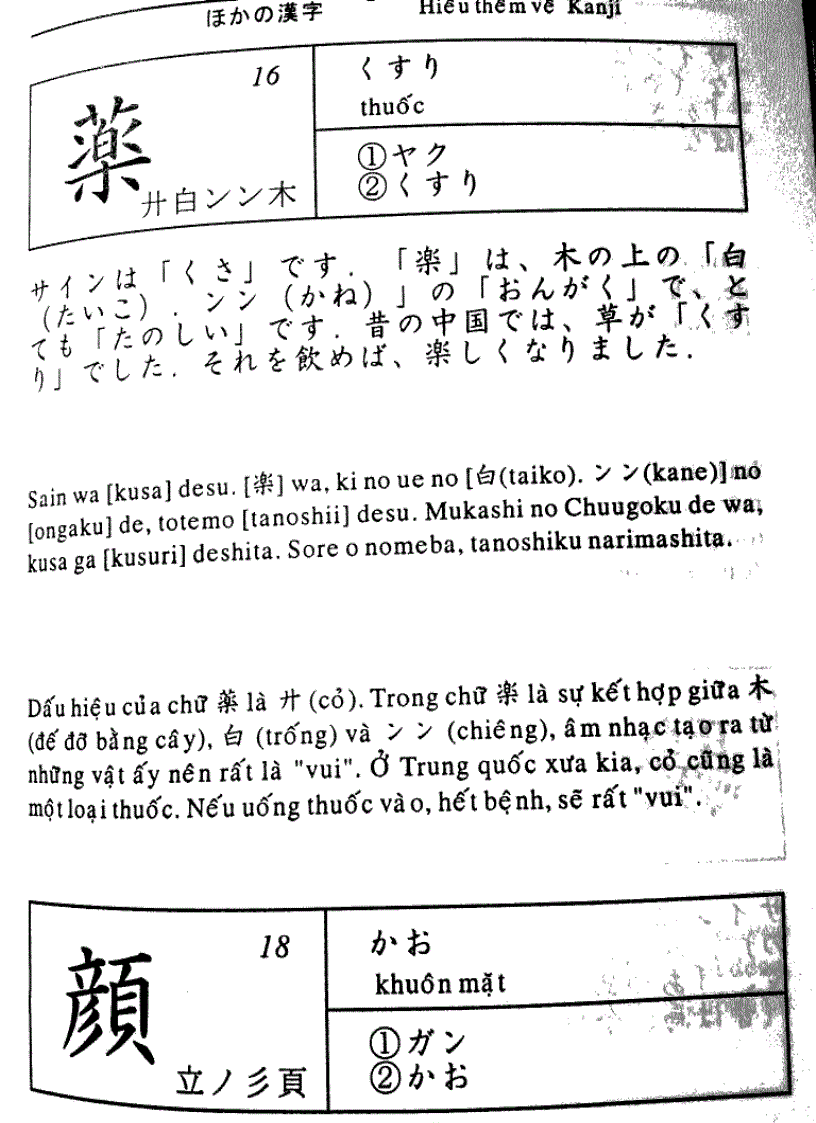 ほかの漢字 Hiểu thêm về Kanji
16
薬
廾白ンン木
くすり
thuốc
①ヤク
②くすり
サインは「くさ」です.「楽」は、木の上の「白
(たいこ).ンン(かね)」の「おんがく」で、と
ても「たのしい」です.昔の中国では、草が「くす
り」でした.それを飲めば、楽しくなりました.
Sain wa [kusa] desu. [楽] wa, ki no ue no [白(taiko). ンン(kane)] no
[ongaku] de, totemo [tanoshii] desu. Mukashi no Chuugoku de wa,
kusa ga [kusuri] deshita. Sore o nomeba, tanoshiku narimashita.
Dấu hiệu của chữ 薬 là 廾 (cỏ). Trong chữ 楽 là sự kết hợp giữa 木
(đế đỡ bằng cây), 白 (trống) và ンン (chiêng), âm nhạc tạo ra từ
những vật ấy nên rất là "vui". Ở Trung quốc xưa kia, cỏ cũng là
một loại thuốc. Nếu uống thuốc vào, hết bệnh, sẽ rất "vui".
18
顔
立ノ彡頁
かお
khuôn mặt
①ガン
②かお